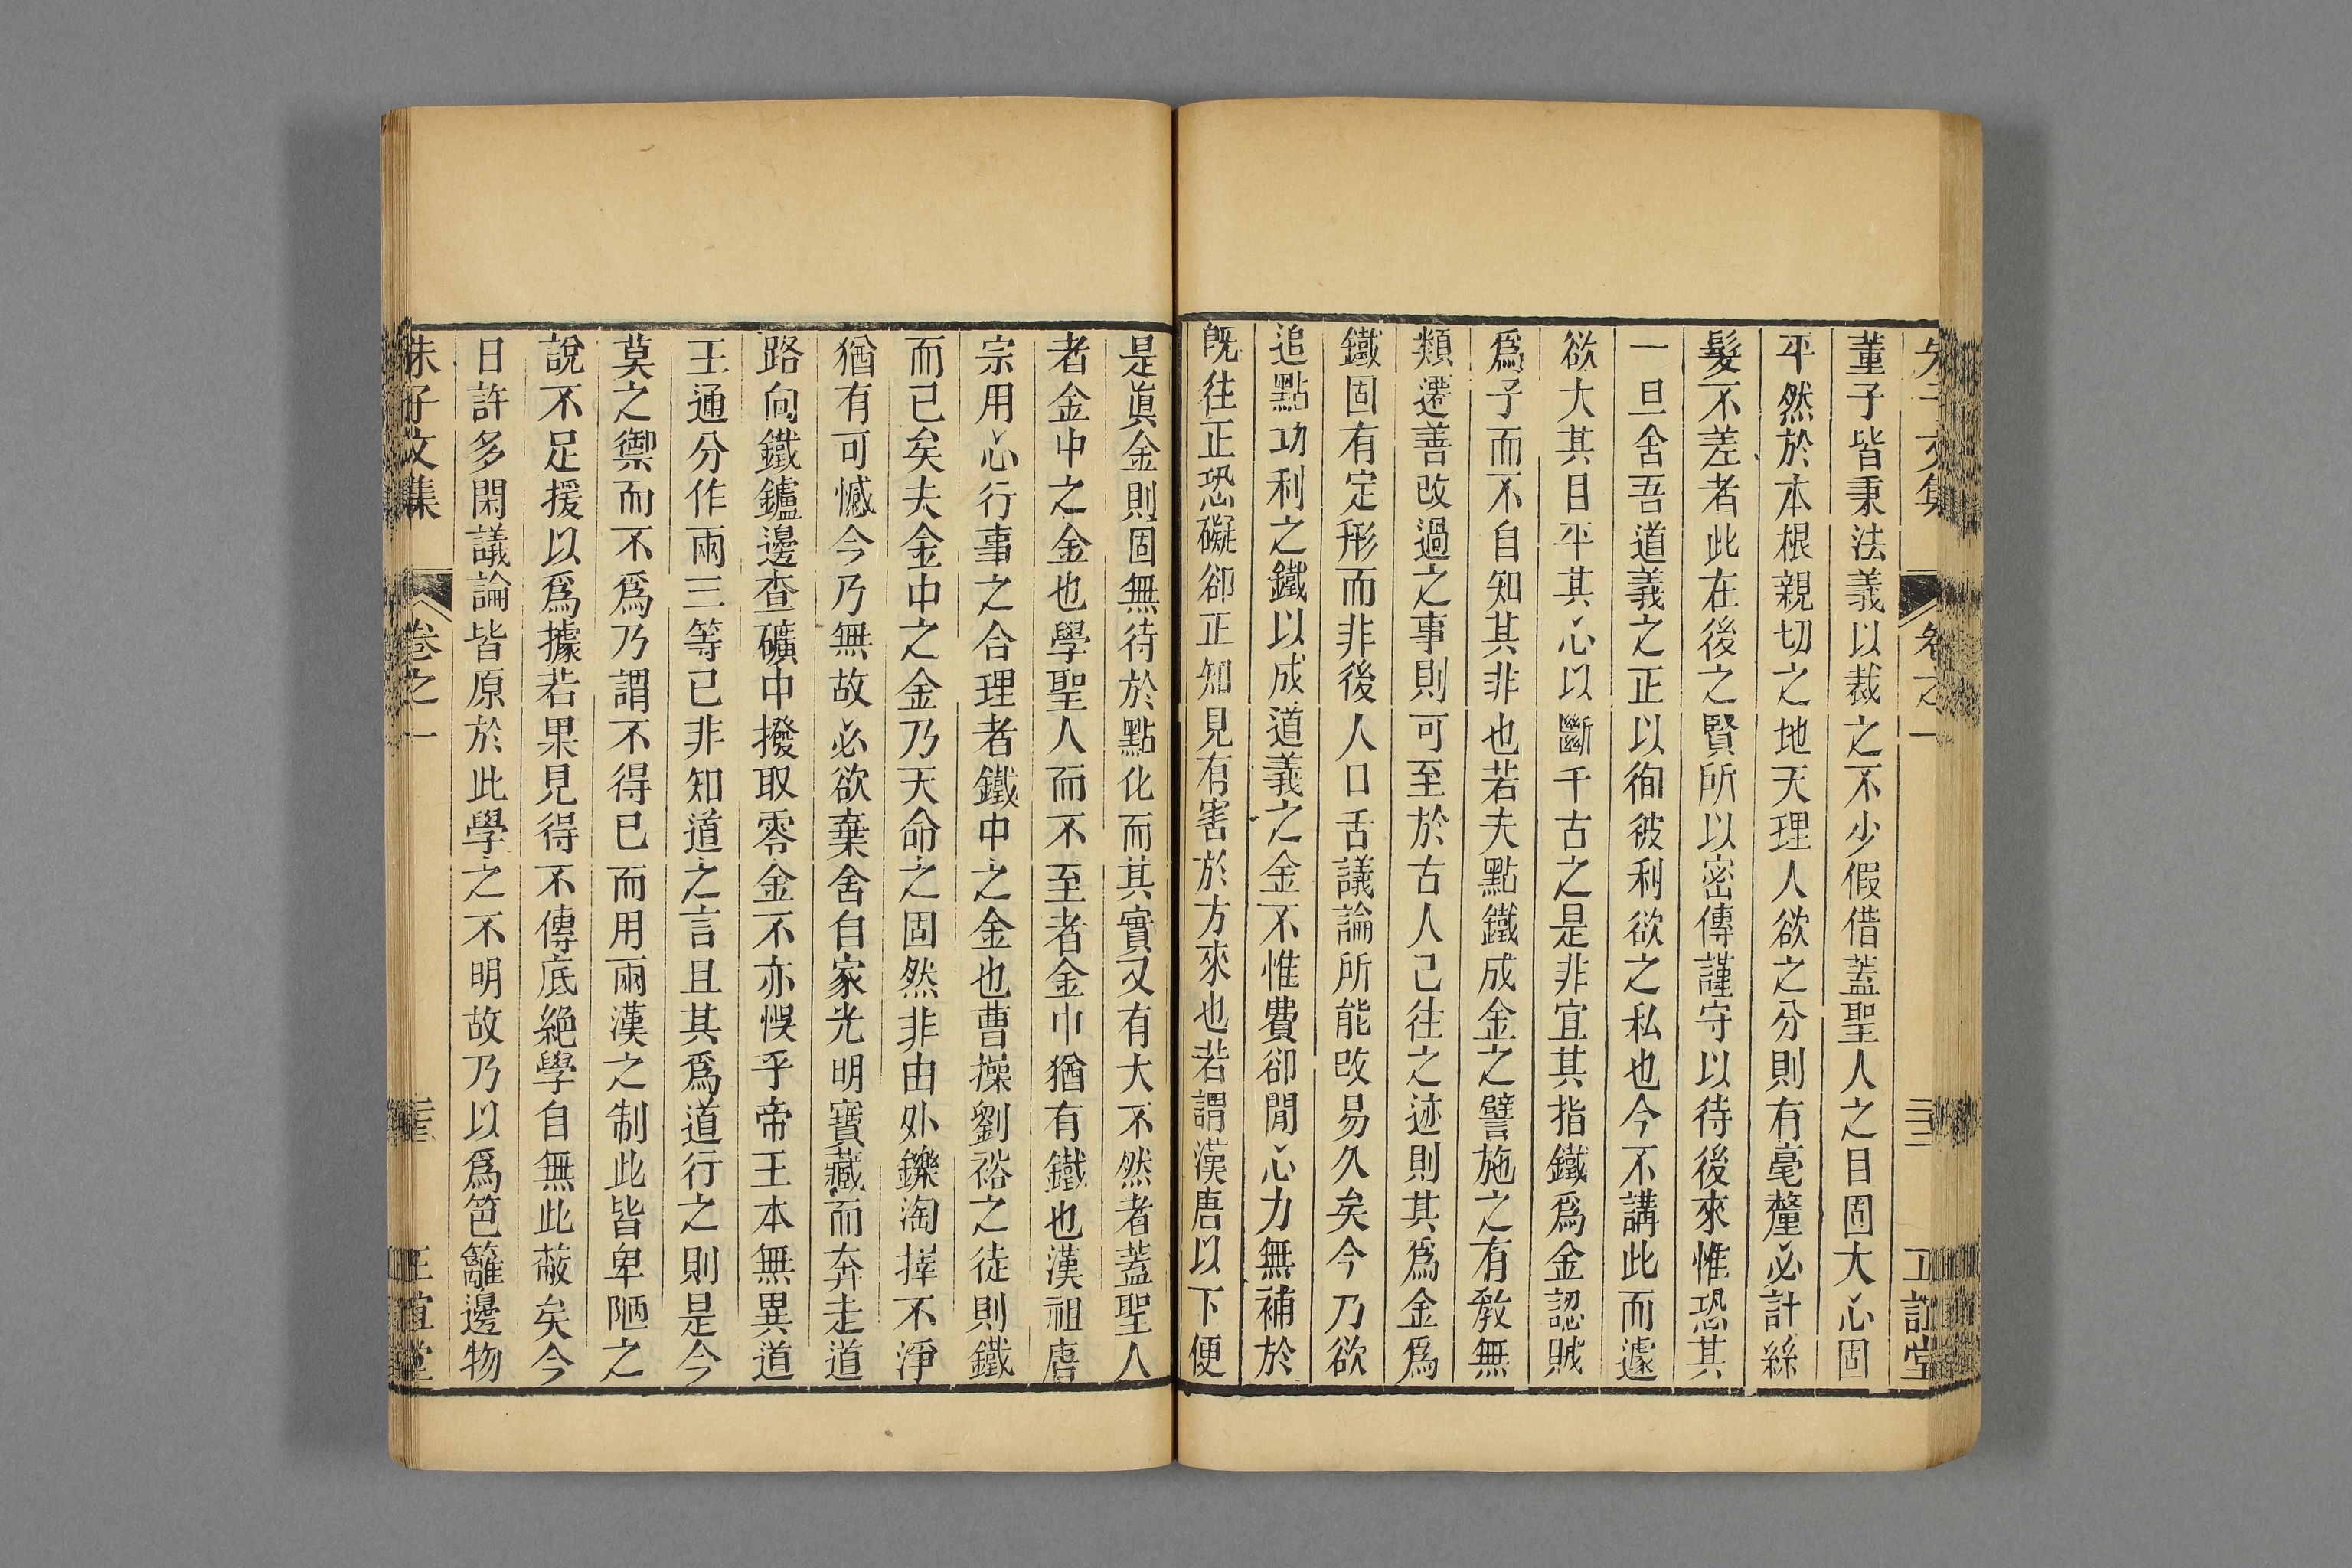 董子皆秉法義以裁之不少假借蓋聖人之目固大心固
平然於本根親切之地天理人欲之分則有毫釐必計絲
髮不差者此在後之賢所以密傳謹守以待後來惟恐其
一旦舍吾道義之正以徇彼利欲之私也今不講此而遽
欲大其目平其心以斷千古之是非宜其指鐵爲金認賊
爲子而不自知其非也若夫點鐵成金之譬施之有敎無
類遷善改過之事則可至於古人已往之迹則其爲金爲
鐵固有定形而非後人口舌議論所能改易久矣今乃欲
追點功利之鐵以成道義之金不惟費卻閒心力無補於
旣往正恐礙卻正知見有害於方來也若謂漢唐以下便
是眞金則固無待於點化而其實又有大不然者蓋聖人
者金中之金也學聖人而不至者金中猶有鐵也漢祖唐
宗用心行事之合理者鐵中之金也曹操劉裕之徒則鐵
而已矣夫金中之金乃天命之固然非由外鑠淘擇不淨
猶有可憾今乃無故必欲棄舍自家光明寶藏而奔走道
路向鐵鑪邊查礦中撥取零金不亦悞乎帝王本無異道
王通分作兩三等已非知道之言且其爲道行之則是今
莫之禦而不爲乃謂不得已而用兩漢之制此皆卑陋之
說不足援以爲據若果見得不傳底絕學自無此蔽矣今
日許多閑議論皆原於此學之不明故乃以爲笆籬邊物
朱子文集 卷之一 正誼堂